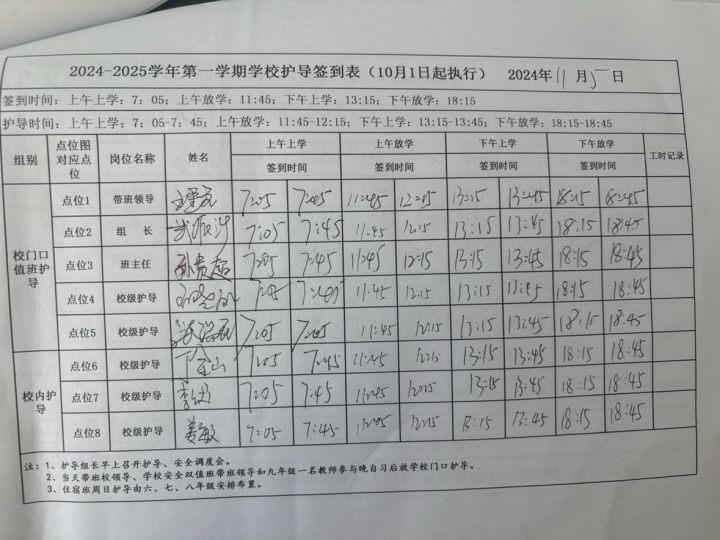 2024-2025学年第一学期学校护导签到表（10月1日起执行） 2024年 11 月 5 日
签到时间：上午上学：7：05；上午放学：11:45；下午上学：13:15；下午放学：18:15
护导时间：上午上学：7：05-7：45；上午放学：11:45-12:15；下午上学：13:15-13:45；下午放学：18:15-18:45
组别 点位图对应点位 岗位名称 姓名 上午上学 上午放学 下午上学 下午放学 工时记录
签到时间 签到时间 签到时间 签到时间
校门口值班护导
点位1 带班领导 7:05 11:45 13:15 13:45 18:15 18:45
点位2 组 长 7:05 7:45 11:45 12:15 13:15 13:45 18:15 18:45
点位3 班主任 孙贵超 7:05 7:45 11:45 12:15 13:15 13:45 18:15 18:45
点位4 校级护导 7:05 11:45 12:15 13:15 13:45 18:15 18:45
点位5 校级护导 7:05 11:45 12:15 13:15 13:45 18:15 18:45
校内护导
点位6 校级护导 7:05 7:45 11:45 12:15 13:15 13:45 18:15 18:45
点位7 校级护导 7:05 7:45 11:45 13:15 13:45 18:15 18:45
点位8 校级护导 姜敏 7:05 7:45 13:15 13:45 18:15 18:45
注：1、护导组长早上召开护导、安全调度会。
2、当天带班校领导、学校安全双值班带班领导和九年级一名教师参与晚自习后放学校门口护导。
3、住宿班周日护导由六、七、八年级安排布置。